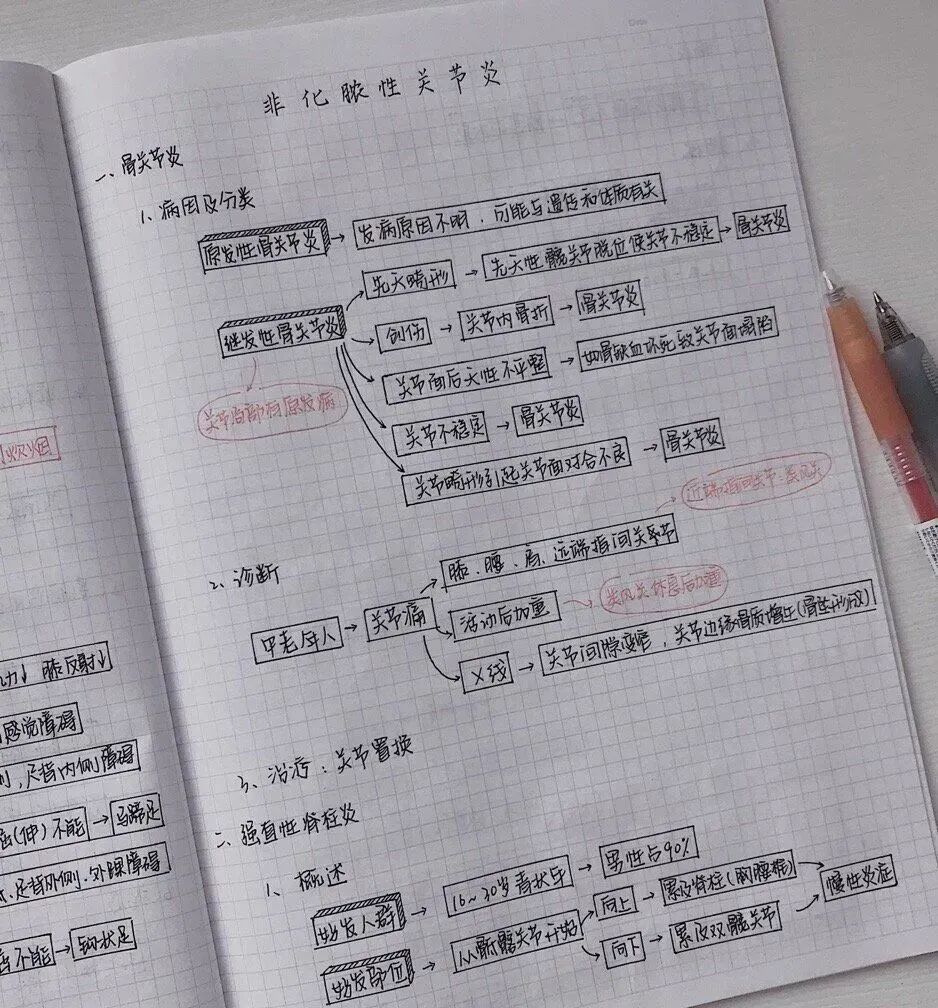 非化脓性关节炎
一、骨关节炎
1、病因及分类
原发性骨关节炎 → 发病原因不明，可能与遗传和体质有关
继发性骨关节炎
先天畸形 → 先天性髋关节脱位使关节不稳定 → 骨关节炎
创伤 → 关节内骨折 → 骨关节炎
关节面后天性不平整 → 如骨缺血坏死致关节面塌陷
关节不稳定 → 骨关节炎
关节畸形引起关节面对合不良 → 骨关节炎
关节局部有原发病
2、诊断
中老年人 → 关节痛
膝、腰、肩、远端指间关节
近端指间关节：类风关
活动后加重
类风关休息后加重
X线 → 关节间隙变窄，关节边缘骨质增生(骨赘形成)
3、治疗：关节置换
二、强直性脊柱炎
1、概述
好发人群 → 16~30岁青壮年 → 男性占90%
好发部位 → 从骶髂关节开始
向上 → 累及脊柱(胸腰椎)
向下 → 累及双髋关节
慢性炎症
力↓ 膝反射↓
感觉障碍
足背内侧障碍
(伸)不能 → 马蹄足
足背外侧、外踝障碍
不能 → 钩状足